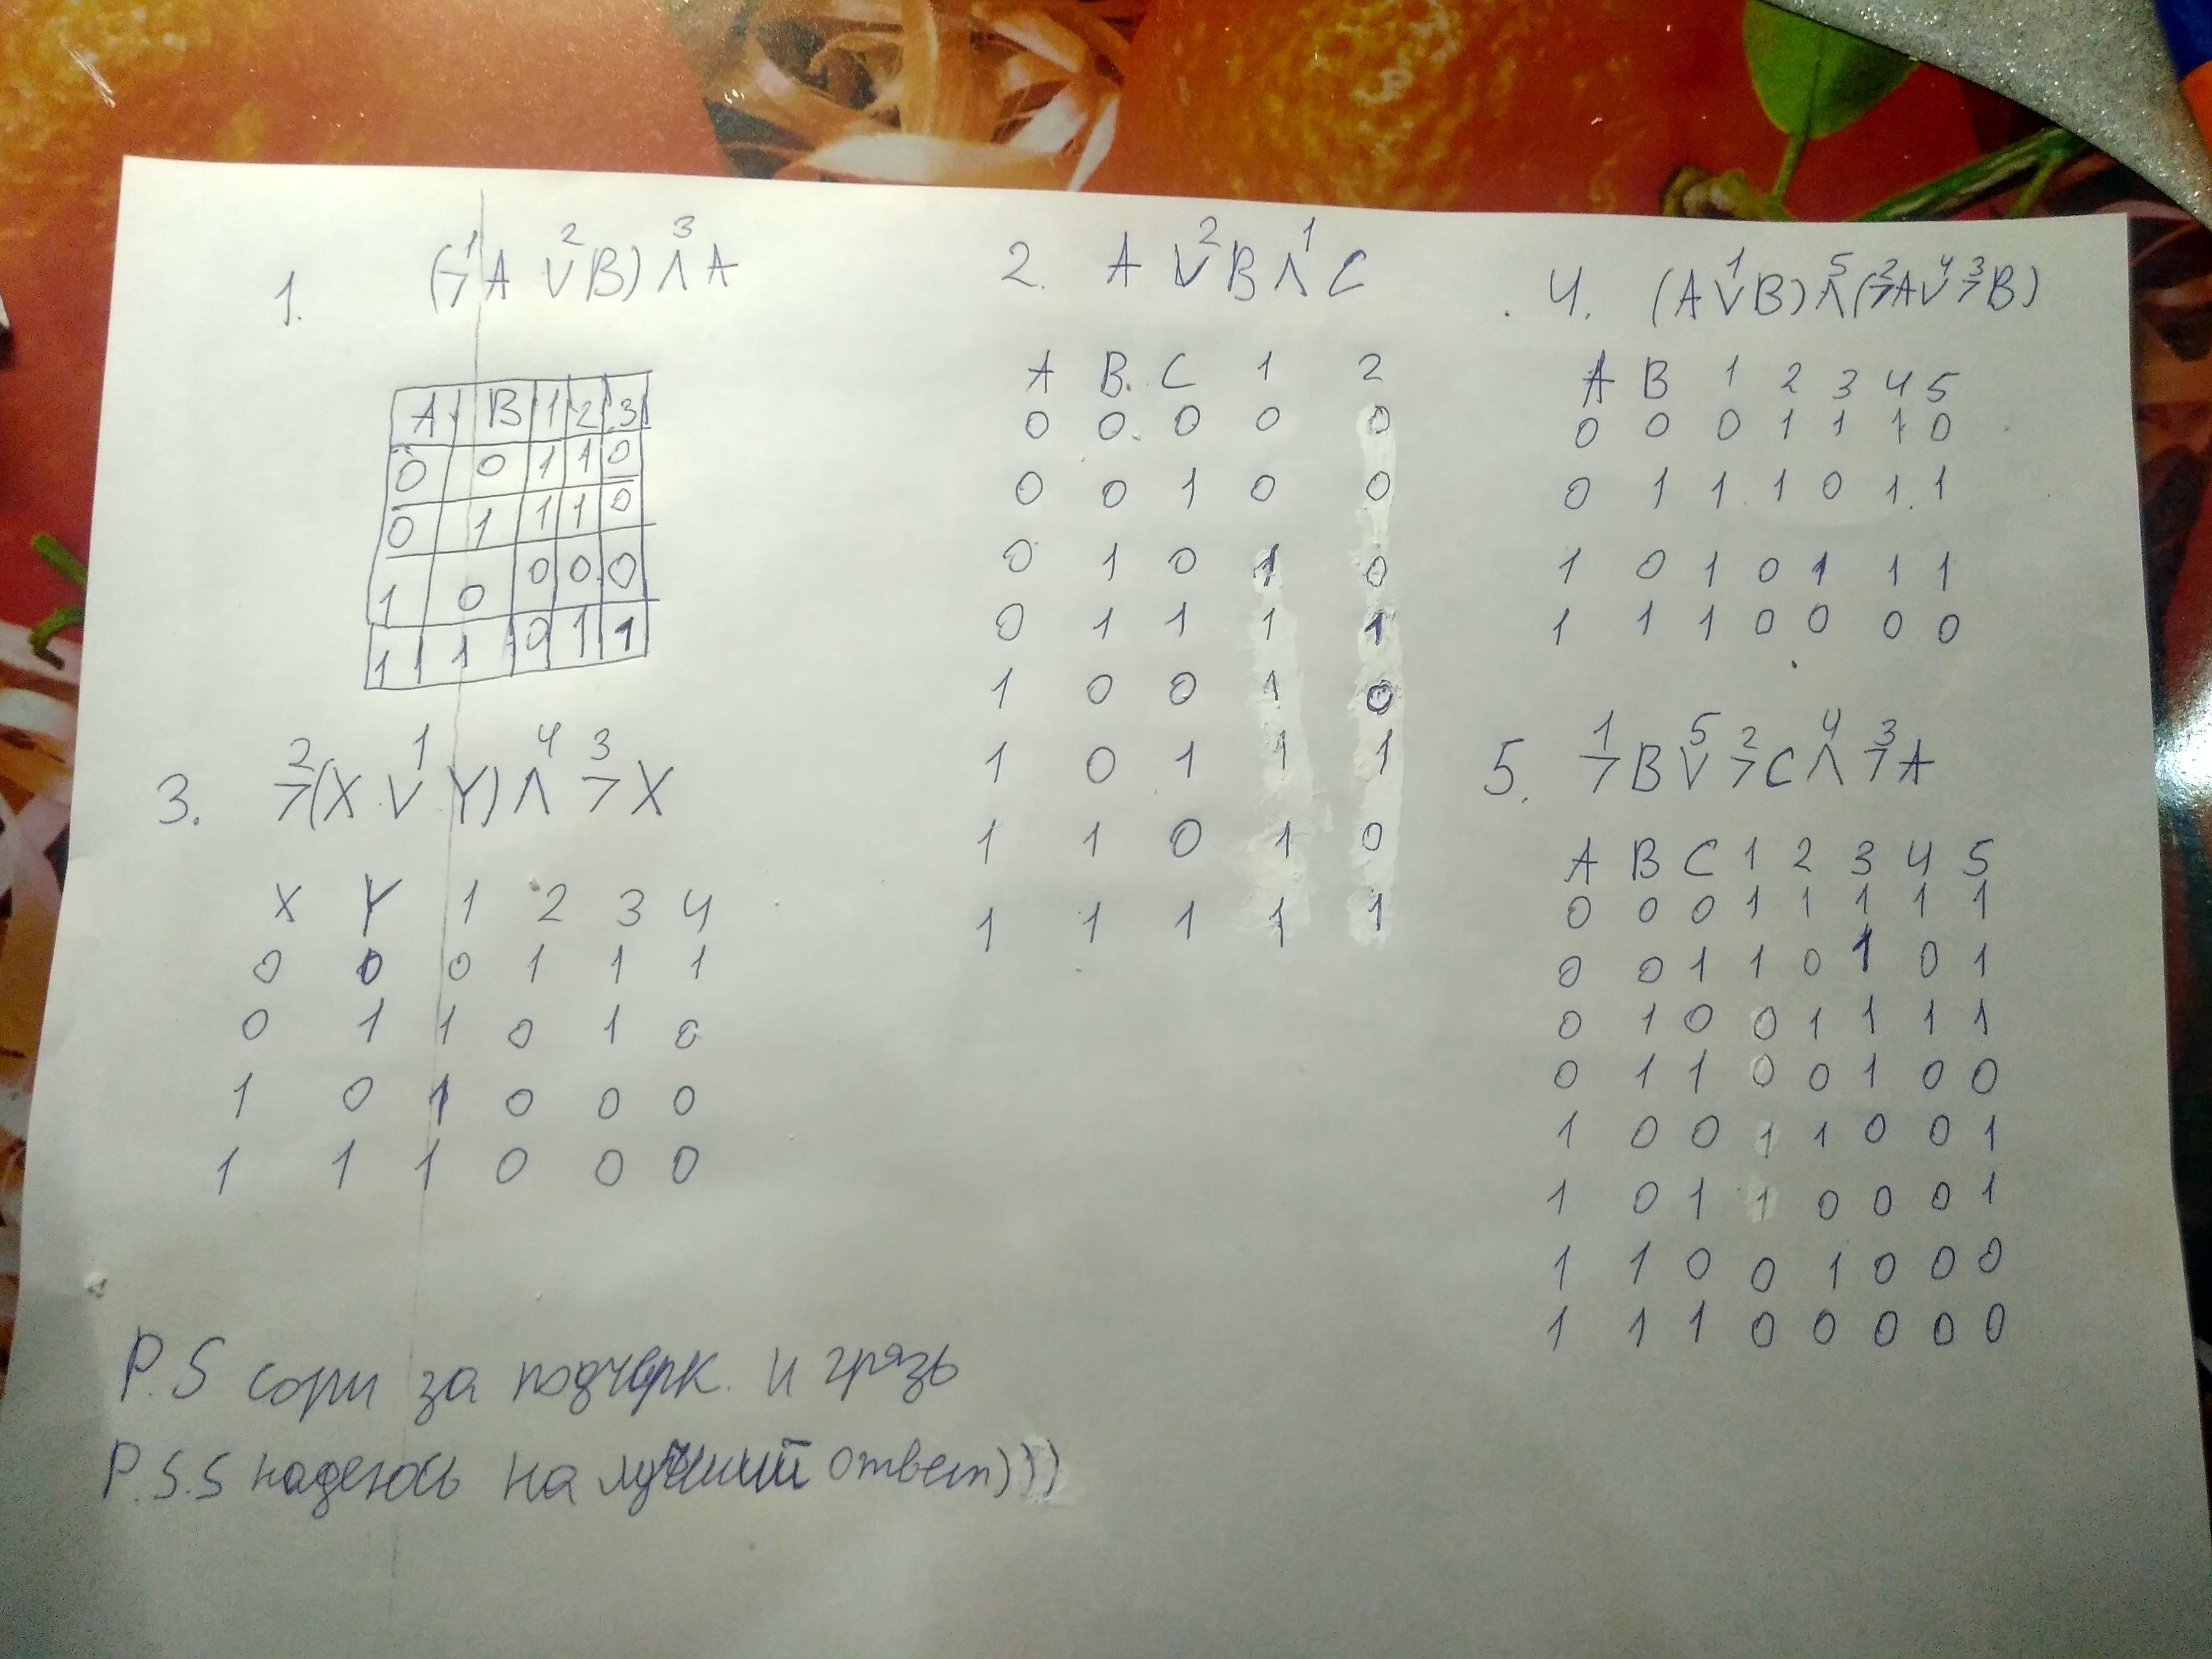 1. (¬A ∨ B) ∧ A
1 2 3
A B 1 2 3
0 0 1 1 0
0 1 1 1 0
1 0 0 0 0
1 1 0 1 1
2. A ∨ B ∧ C
2 1
A B C 1 2
0 0 0 0 0
0 0 1 0 0
0 1 0 1 0
0 1 1 1 1
1 0 0 1 0
1 0 1 1 1
1 1 0 1 0
1 1 1 1 1
3. ¬(X ∨ Y) ∧ ¬X
2 1 4 3
X Y 1 2 3 4
0 0 0 1 1 1
0 1 1 0 1 0
1 0 1 0 0 0
1 1 1 0 0 0
4. (A ∨ B) ∧ (¬A ∨ ¬B)
1 5 2 4 3
A B 1 2 3 4 5
0 0 0 1 1 1 0
0 1 1 1 0 1 1
1 0 1 0 1 1 1
1 1 1 0 0 0 0
5. ¬B ∨ ¬C ∧ ¬A
1 5 2 4 3
A B C 1 2 3 4 5
0 0 0 1 1 1 1 1
0 0 1 1 0 1 0 1
0 1 0 0 1 1 1 1
0 1 1 0 0 1 0 0
1 0 0 1 1 0 0 1
1 0 1 1 0 0 0 1
1 1 0 0 1 0 0 0
1 1 1 0 0 0 0 0
P.S сори за подчерк. и грязь
P.S.S надеюсь на лучший ответ)))